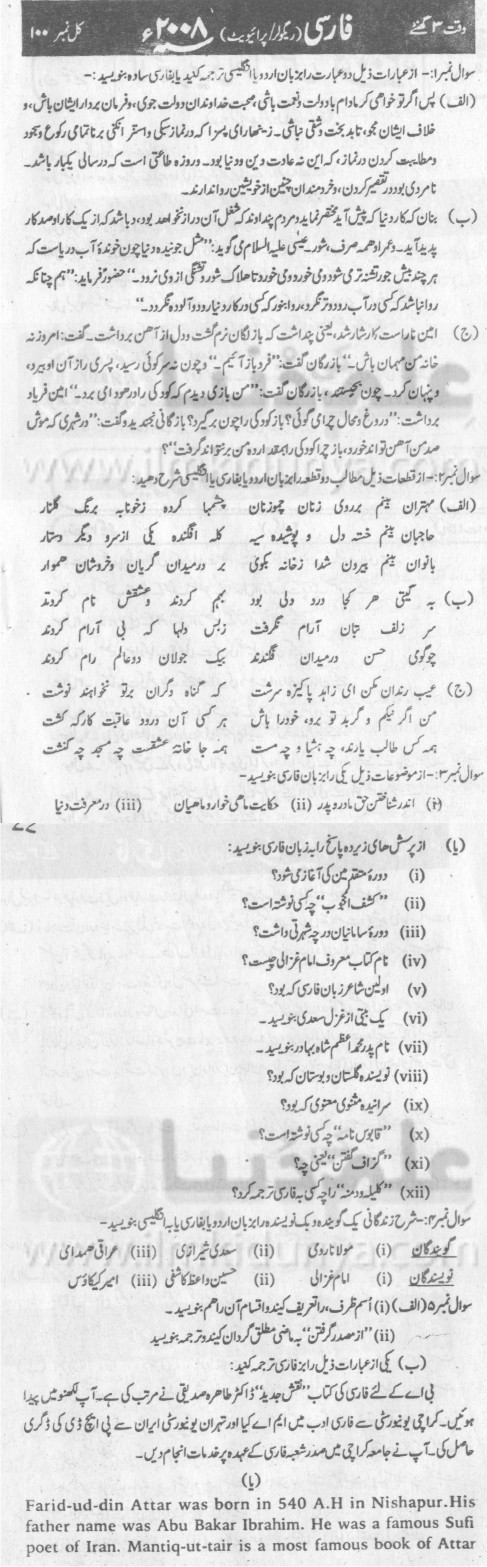 وقت ۳ گھنٹے فارسی (ریگولر/پرائیویٹ) ۲۰۰۸ء کل نمبر ۱۰۰
سوال نمبر۱:- از عبارات ذیل دو عبارت را بزبان اردو یا انگلیسی ترجمہ کنید یا بفارسی سادہ بنویسید:-
(الف) پس اگر تو خواھی کہ مادام با دولت و نعمت باشی، محبت خداوندان دولت جوی، و فرمان بردار ایشان باش، و
خلاف ایشان مجو، تا بد بخت و شقی نباشی۔ زینھار ای پسر! کہ در نماز سبکی و استھزا نکنی بر ناتمامی رکوع و سجود
و مطایبت کردن در نماز، کہ این نہ عادت دین و دنیا بود۔ و روزہ طاعتی است کہ در سالی یکبار باشد۔
نامردی بود در تقصیر کردن، و خردمندان چنین از خویشتن روا ندارند۔
(ب) بدان کہ کار دنیا کہ پیش آید مختصر نماید و مردم پندارند کہ شغل آن دراز نخواھد بود، و باشد کہ از یک کار او صد کار
پدید آید۔ و عمر او ھمہ صرف شود۔ عیسیٰ علیہ السلام می گوید: "مثل جویندہ دنیا چون خورندۂ آب دریاست کہ
ھر چند بیش خورد تشنہ تر می شود و می خورد و می خورد تا ھلاک شود و تشنگی از وی نرود۔" حضورؐ فرماید: "ھم چنانکہ
روا نباشد کہ کسی در آب رود و تر نگردد، روا نبود کہ کسی در کار دنیا رود و آلودہ نگردد۔"
(ج) امین ناراست کار شاد شد، یعنی پنداشت کہ بازارگان نرم گشت و دل از آھن برداشت۔ گفت: امروز نہ
خانہ من مہمان باش۔" بازرگان گفت: "فردا باز آئیم۔" و چون نہ سر کوئی رسید، پسری را از آن او ببرد،
و پنہان کرد۔ چون بجستند، بازرگان گفت: "من بازی دیدم کہ کودکی را در ھوا می برد۔" امین فریاد
برداشت: "دروغ و محال چرا می گوئی؟ باز کودکی را چون برگیرد؟ بازرگانی بخندید و گفت: "در شہری کہ موش
صد من آھن تواند خورد، باز چرا کودکی را بمقدار دہ من بر نتواند گرفت"؟
سوال نمبر۲:- از قطعات ذیل مطالب دو قطعہ را بزبان اردو یا بفارسی یا انگلیسی شرح دھید:
(الف) مہتران بینم بر روی زنان چو زنان چشمہا کردہ زخونابہ برنگ گلنار
حاجبان بینم خستہ دل و پوشیدہ سیہ کلہ افگندہ یکی از سر و دیگر دستار
بانوان بینم بیرون شدا زخانہ بکوی بر در میدان گریان و خروشان ھموار
(ب) بہ گیتی ھر کجا درد ولی بود بہم کردند و عشقش نام کردند
سر زلف بتان آرام نگرفت زبس دلہا کہ بی آرام کردند
چو گوی حسن در میدان فگندند بیک جولان دو عالم رام کردند
(ج) عیب رندان مکن ای زاہد پاکیزہ سرشت کہ گناہ دگران بر تو نخواھند نوشت
من اگر نیکم و گر بد تو برو، خود را باش ھر کسی آن درود عاقبت کار کہ کشت
ھمہ کس طالب یارند، چہ ھشیار و چہ مست ھمہ جا خانۂ عشقست چہ مسجد چہ کنشت
سوال نمبر۳:- از موضوعات ذیل یکی را بزبان فارسی بنویسید۔
(i) اندر شناختن حق مادر و پدر (ii) حکایت ماھی خوار و ماھیان (iii) در معرفت دنیا
(یا) از پرسش ھای زیر دہ پاسخ را بہ زبان فارسی بنویسید:
(i) دورۂ متقدمین کی آغاز می شود؟
(ii) "کشف المحجوب" چہ کسی نوشتہ است؟
(iii) دورۂ سامانیان در چہ شہرتی داشت؟
(iv) نام کتاب معروف امام غزالی چیست؟
(v) اولین شاعر زبان فارسی کہ بود؟
(vi) یک بیتی از غزل سعدی بنویسید۔
(vii) نام پدر محمد اعظم شاہ بہادر بنویسید۔
(viii) نویسندہ گلستان و بوستان کہ بود؟
(ix) سرائندہ مثنوی معنوی کہ بود؟
(x) "قابوس نامہ" چہ کسی نوشتہ است؟
(xi) "گزاف گفتن" یعنی چہ؟
(xii) "کلیلہ و دمنہ" را چہ کسی بہ فارسی ترجمہ کرد؟
سوال نمبر۴:- شرح زندگانی یک گویندہ و یک نویسندہ را بزبان اردو یا بفارسی یا بہ انگلیسی بنویسید۔
گویندگان (i) مولانا رومی (ii) سعدی شیرازی (iii) عراقی ھمدای
نویسندگان (i) امام غزالی (ii) حسین واعظ کاشفی (iii) امیر کیکاؤس
سوال نمبر۵ (الف) (i) اسم ظرف، را تعریف کنید و اقسام آن را ھم بنویسید۔
(ii) "از مصدر گرفتن" بہ ماضی مطلق گردان کنید و ترجمہ بنویسید
(ب) یکی از عبارات ذیل را بز فارسی ترجمہ کنید:
بی اے کے لئے فارسی کی کتاب "نقش جدید" ڈاکٹر طاہرہ صدیقی نے مرتب کی ہے۔ آپ لکھنو میں پیدا
ہوئیں۔ کراچی یونیورسٹی سے فارسی ادب میں ایم اے کیا اور تہران یونیورسٹی ایران سے پی ایچ ڈی کی ڈگری
حاصل کی۔ آپ نے جامعہ کراچی میں صدر شعبہ فارسی کے عہدہ پر خدمات انجام دیں۔
(یا)
Farid-ud-din Attar was born in 540 A.H in Nishapur. His
father name was Abu Bakar Ibrahim. He was a famous Sufi
poet of Iran. Mantiq-ut-tair is a most famous book of Attar
علم دنیا
www.ilmkidunya.com